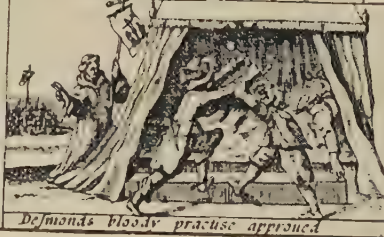 Desmonds bloody practise approued